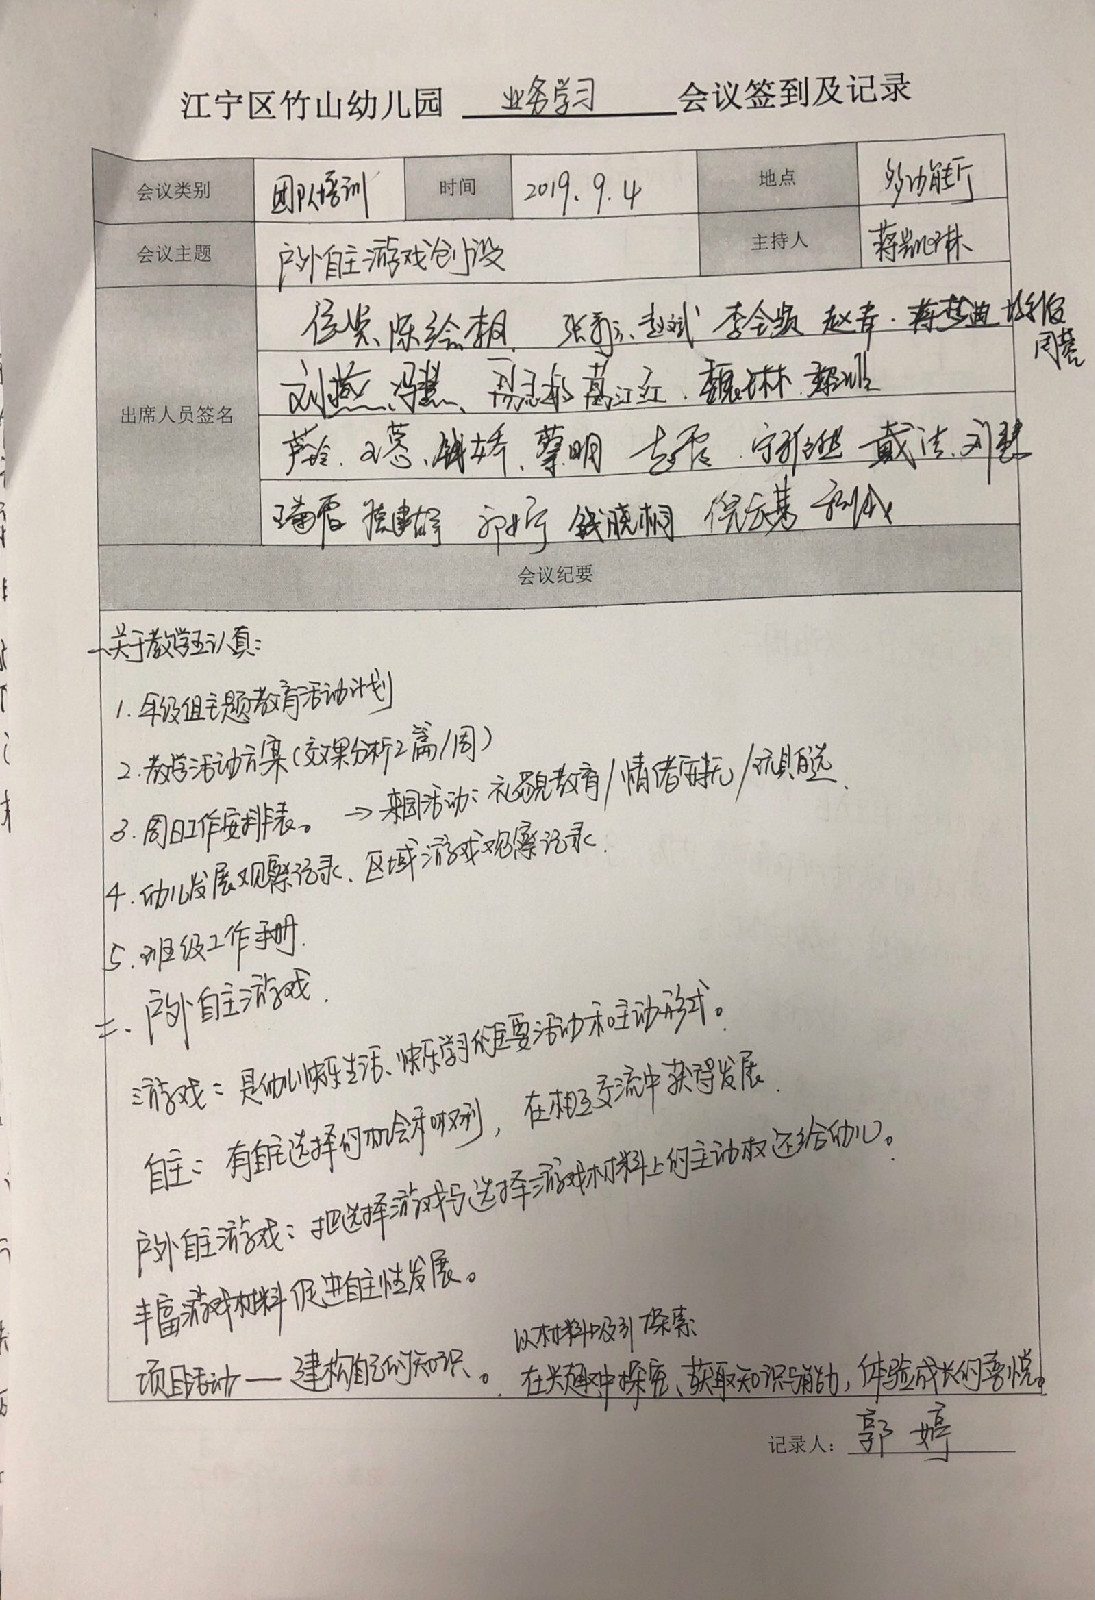 江宁区竹山幼儿园 业务学习 会议签到及记录
会议类别 团队培训 时间 2019.9.4 地点 多功能厅
会议主题 户外自主游戏创设 主持人 蒋凯琳
出席人员签名
李金 赵 蒋梦
周慧
刘燕、冯慧、葛江红、魏 林
芦玲、钱娇、蔡明 戴洁、刘慧
郭婷 钱晓桐 倪
会议纪要
一、关于教学五认真：
1. 年级组主题教育活动计划
2. 教学活动方案（效果分析2篇/周）
3. 周日工作安排表。 → 来园活动：礼貌教育/情绪安抚/玩具自选.
4. 幼儿发展观察记录、区域游戏观察记录.
5. 班级工作手册.
二、户外自主游戏.
游戏：是幼儿快乐生活、快乐学习的主要活动和主动形式。
自主：有自主选择的机会和权利，在相互交流中获得发展.
户外自主游戏：把选择游戏与选择游戏材料上的主动权还给幼儿。
丰富游戏材料促进自主性发展。
以材料吸引探索
项目活动——建构自己的知识。在兴趣中探究、获取知识与能力，体验成长的喜悦。
记录人：郭婷